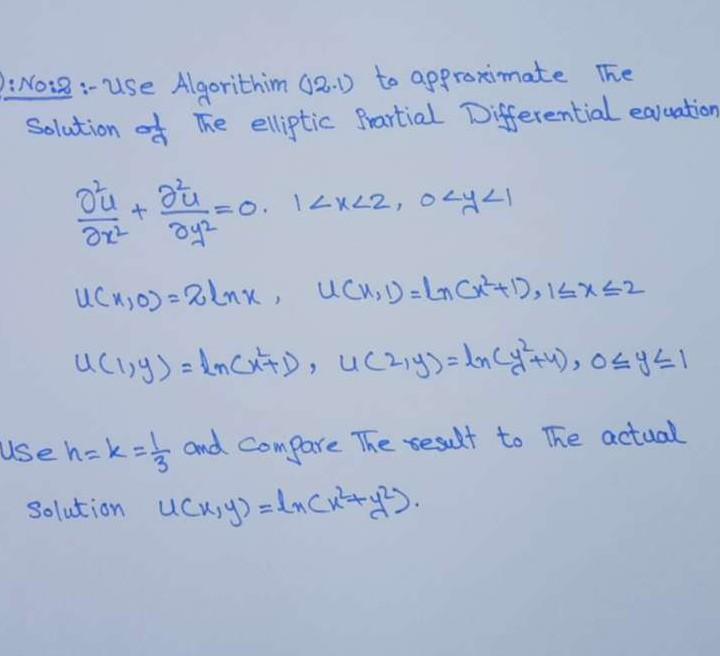 :No:2 :- Use Algorithim (12.1) to approximate The
Solution of The elliptic Partial Differential equation
∂²u/∂x² + ∂²u/∂y² = 0. 1<x<2, 0<y<1
u(x,0) = 2lnx, u(x,1) = ln(x²+1), 1≤x≤2
u(1,y) = ln(x²+1), u(2,y) = ln(y²+4), 0≤y≤1
Use h=k=1/3 and compare The result to The actual
Solution u(x,y) = ln(x²+y²).